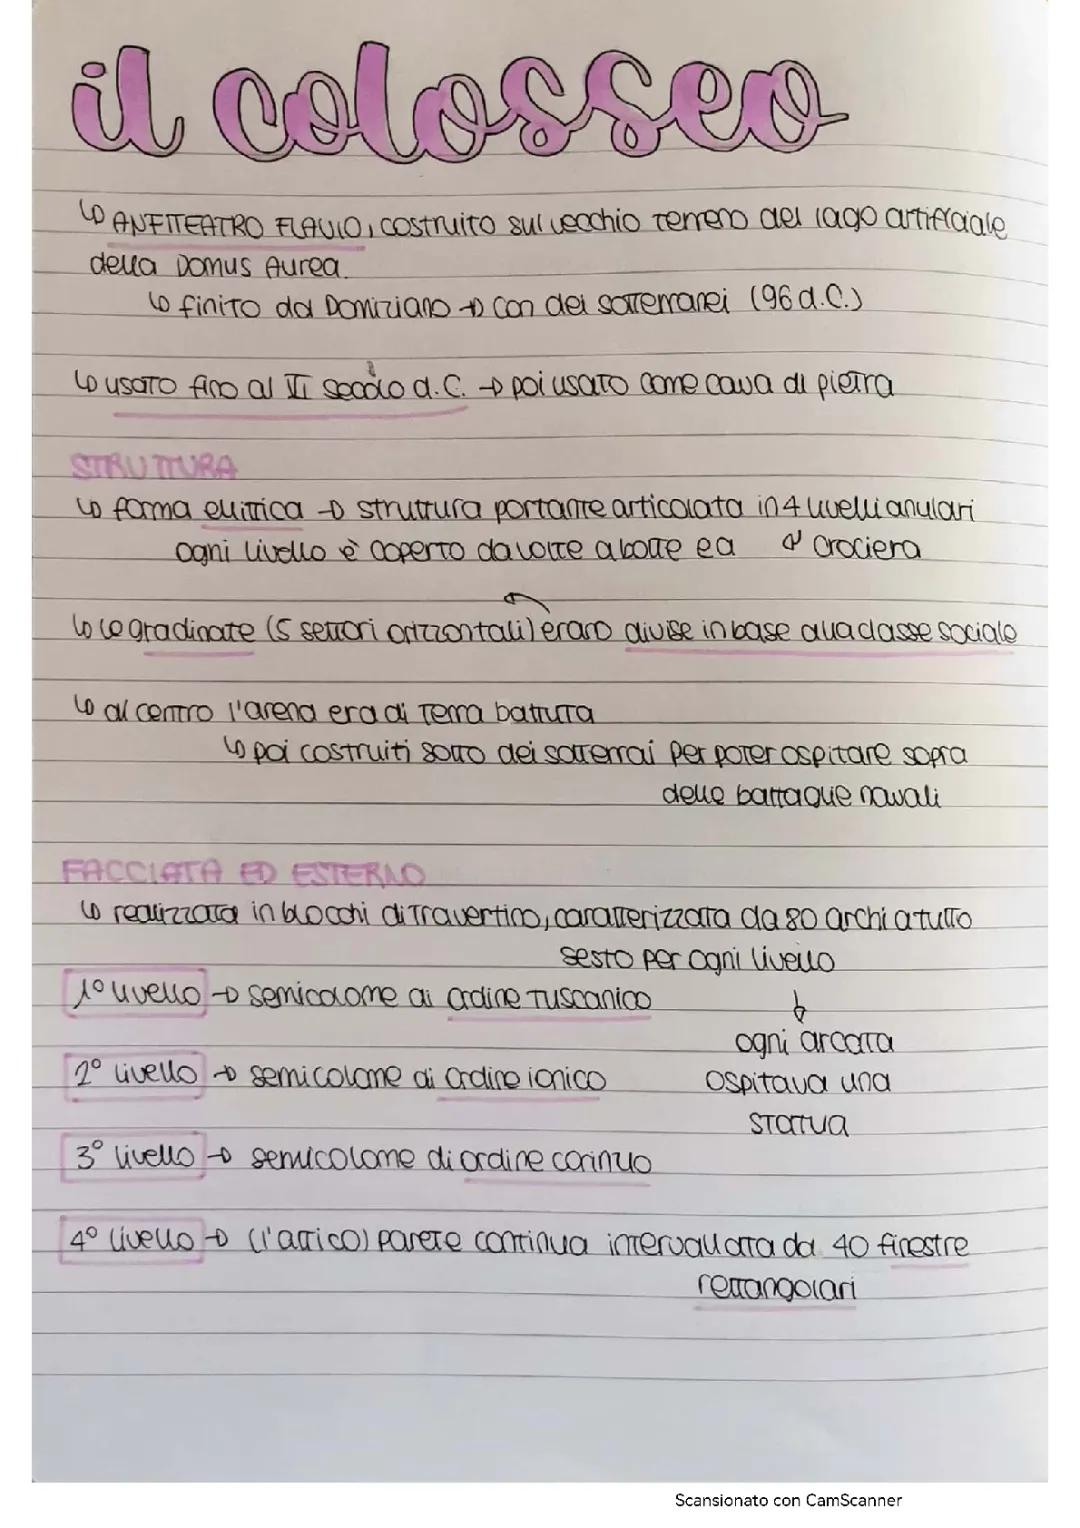 il colosseo
↳ ANFITEATRO FLAVIO, costruito sul vecchio terreno del lago artificiale
della Domus Aurea.
↳ finito da Domiziano → con dei sotterranei (96 d.C.)
↳ usato fino al VI secolo d.C. → poi usato come cava di pietra
STRUTTURA
↳ forma ellittica → struttura portante articolata in 4 livelli anulari
ogni livello è coperto da volte a botte e a ↲ crociera
↳ le gradinate (5 settori orizzontali) erano divise in base alla classe sociale
↳ al centro l'arena era di terra battuta
↳ poi costruiti sotto dei sotterrai per poter ospitare sopra
delle battaglie navali
FACCIATA ED ESTERNO
↳ realizzata in blocchi di Travertino, caratterizzata da 80 archi a tutto
sesto per ogni livello
1° livello → semicolonne di ordine tuscanico
↓
ogni arcata
2° livello → semicolonne di ordine ionico
ospitava una
statua
3° livello → semicolonne di ordine corinzio
4° livello → (l'attico) parete continua intervallata da 40 finestre
rettangolari
Scansionato con CamScanner